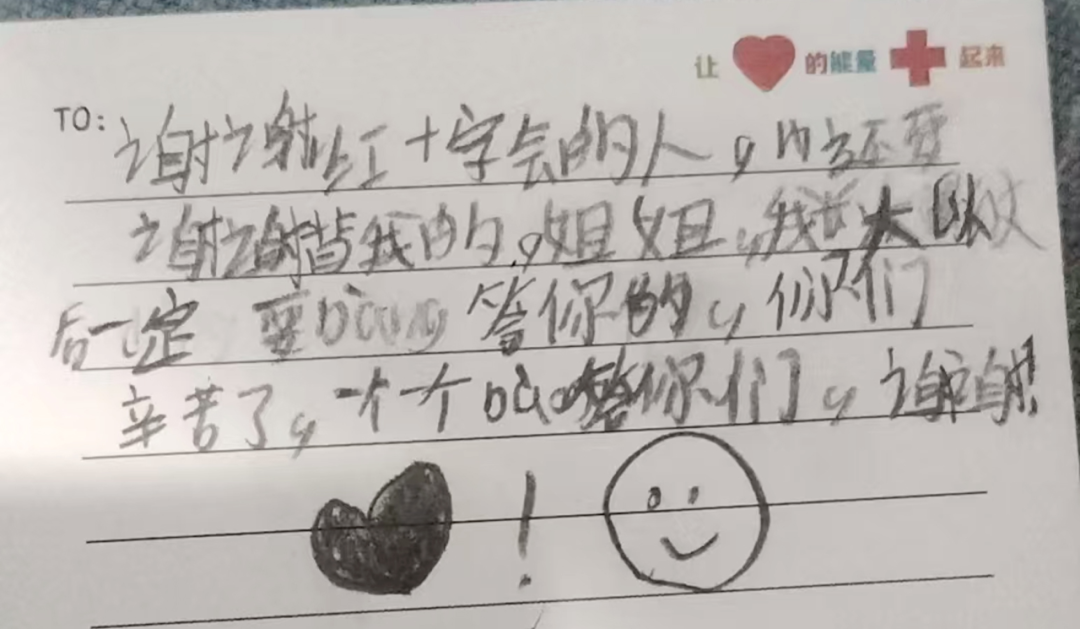 让❤的能量✚起来
TO: 谢谢红十字会的人,内心还要
谢谢背我的,姐姐,我长大以
后一定要bào答你的,你们
辛苦了,一个个bào答你们,谢谢!
!